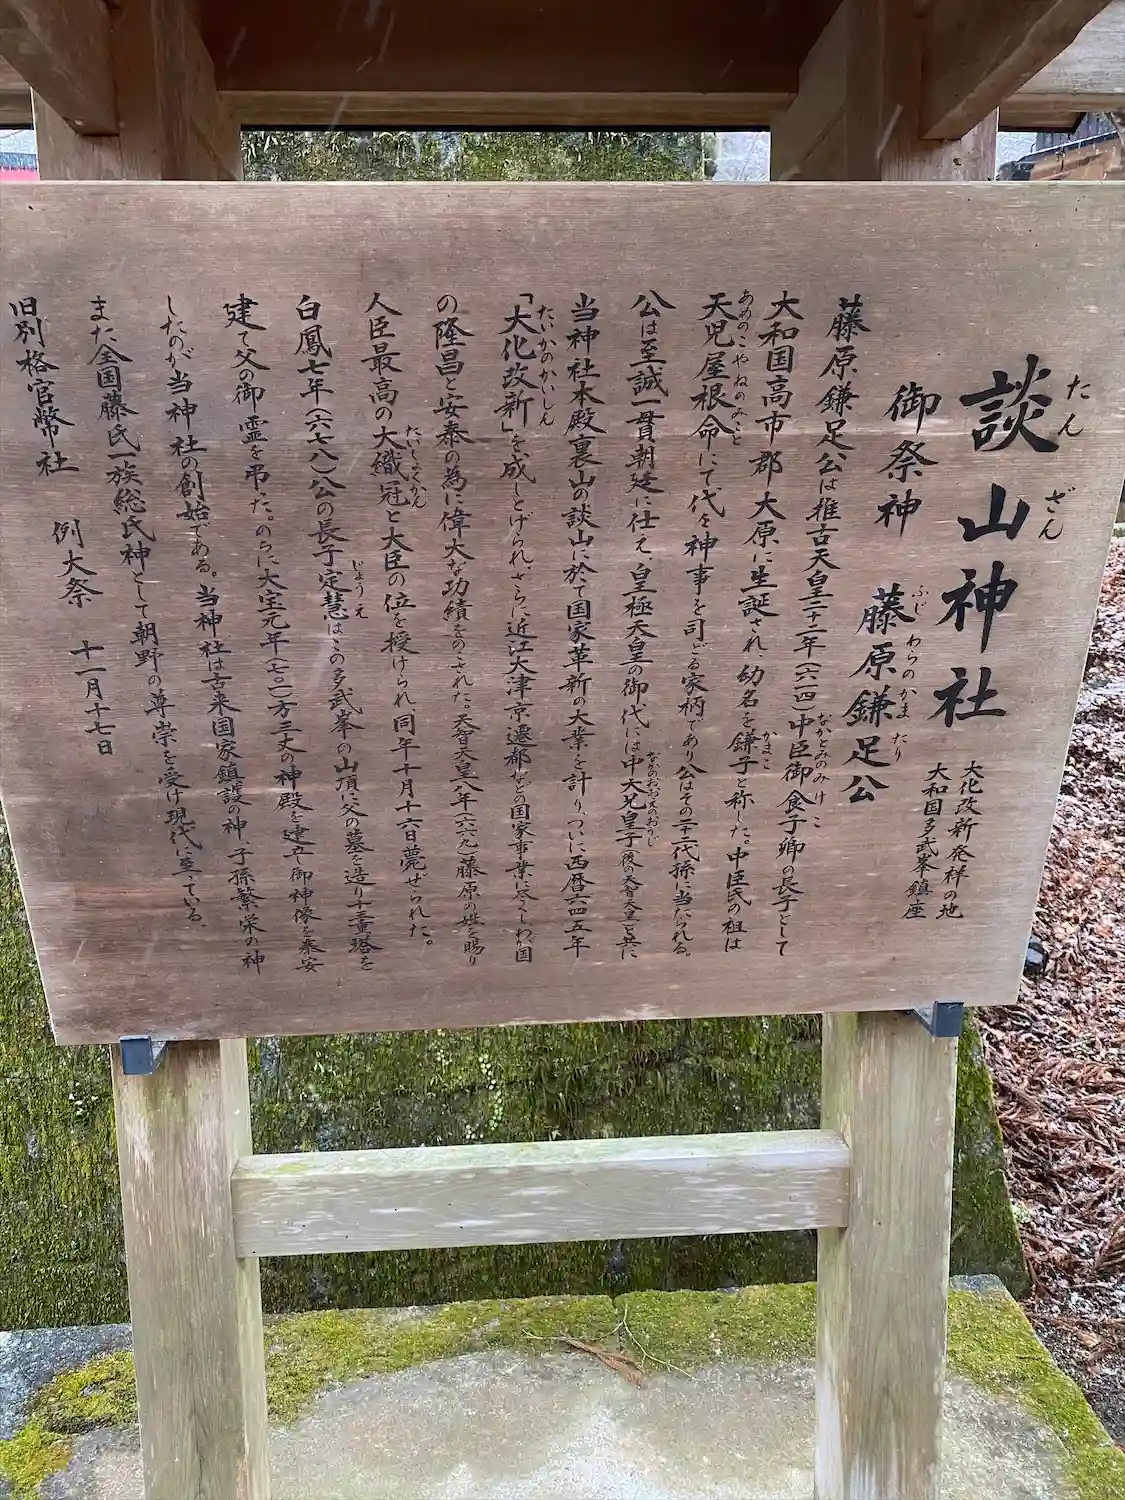 談山神社
たんざん
大化改新発祥の地
大和国多武峯鎮座
御祭神 藤原鎌足公
ふじわらのかまたり
藤原鎌足公は推古天皇二十二年(六一四)中臣御食子卿の長子として
なかとみのみけこ
大和国高市郡大原に生誕され、幼名を鎌子と称した。中臣氏の祖は
かまこ
天児屋根命にて代々神事を司どる家柄であり公はその二十二代孫に当たられる。
あめのこやねのみこと
公は至誠一貫朝廷に仕え、皇極天皇の御代には中大兄皇子(後の天智天皇)と共に
なかのおおえのおうじ
当神社本殿裏山の談山に於て国家革新の大業を計り、ついに西暦六四五年
「大化改新」を成しとげられ、さらに近江大津京遷都などの国家事業に尽くしわが国
たいかのかいしん
の隆昌と安泰の為に偉大な功績をのこされた。天智天皇八年(六六九)藤原の姓を賜り
人臣最高の大織冠と大臣の位を授けられ、同年十月十六日薨ぜられた。
たいしょくかん
白鳳七年(六七八)公の長子定慧はこの多武峯の山頂に父の墓を造り十三重塔を
じょうえ
建て父の御霊を弔った。のちに大宝元年(七〇一)方三丈の神殿を建立し御神像を奉安
したのが当神社の創始である。当神社は古来国家鎮護の神、子孫繁栄の神
また全国藤氏一族総氏神として朝野の尊崇を受け現代に至っている。
旧別格官幣社 例大祭 十一月十七日